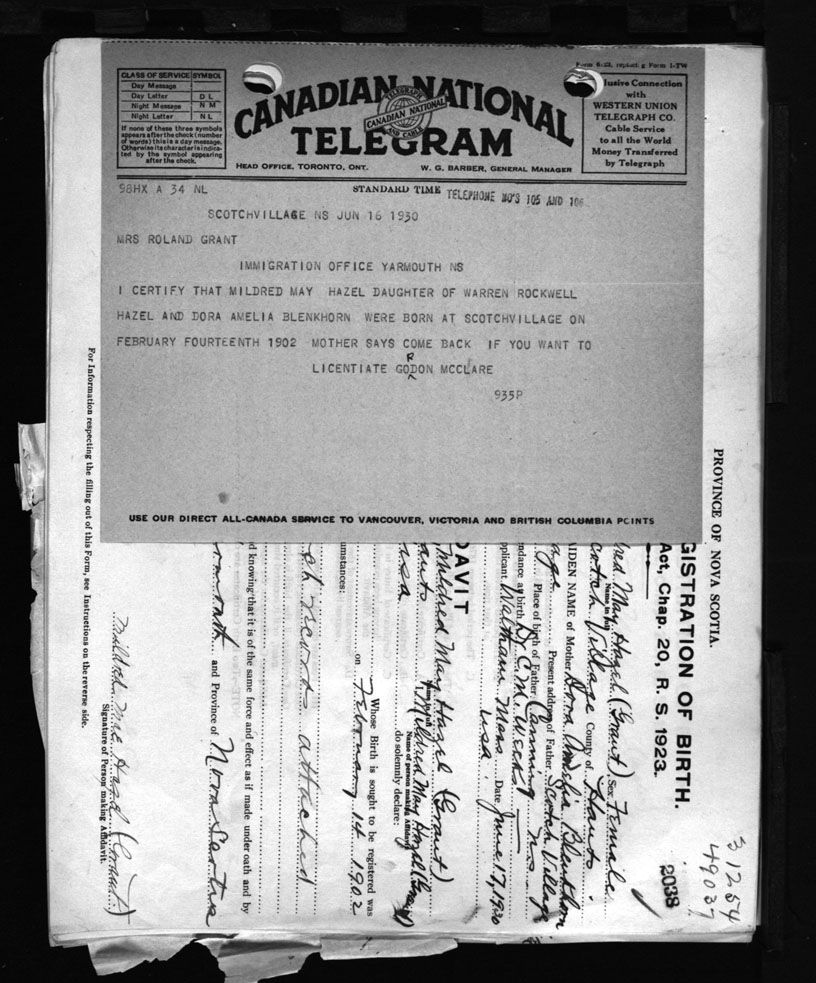 Form 6123, replacing Form 1-TW
CLASS OF SERVICE SYMBOL
Day Message
Day Letter D L
Night Message N M
Night Letter N L
If none of these three symbols
appears after the check (number
of words) this is a day message.
Otherwise its character is indica-
ted by the symbol appearing
after the check.
CANADIAN NATIONAL
TELEGRAM
TELEGRAPH
CANADIAN NATIONAL
AND CABLE
HEAD OFFICE, TORONTO, ONT. W. G. BARBER, GENERAL MANAGER
lusive Connection
with
WESTERN UNION
TELEGRAPH CO.
Cable Service
to all the World
Money Transferred
by Telegraph
98HX A 34 NL STANDARD TIME TELEPHONE NO'S 105 AND 106
SCOTCHVILLAGE NS JUN 16 1930
MRS ROLAND GRANT
IMMIGRATION OFFICE YARMOUTH NS
I CERTIFY THAT MILDRED MAY HAZEL DAUGHTER OF WARREN ROCKWELL
HAZEL AND DORA AMELIA BLENKHORN WERE BORN AT SCOTCHVILLAGE ON
FEBRUARY FOURTEENTH 1902 MOTHER SAYS COME BACK IF YOU WANT TO
LICENTIATE GORDON MCCLARE
935P
USE OUR DIRECT ALL-CANADA SERVICE TO VANCOUVER, VICTORIA AND BRITISH COLUMBIA POINTS
31254
49037
2038
PROVINCE OF NOVA SCOTIA.
GISTRATION OF BIRTH.
Act, Chap. 20, R. S. 1923.
red May Hazel (Grant) Sex Female
Name in full
cotch Village County of Hants
AIDEN NAME of Mother Dora Amelia Blenkhorn
age Present address of Father Scotch Village
Place of birth of Father Canning N.S.
ndance at birth Dr C. M. Weeks
pplicant Waltham Mass Date June 17, 1930
usa
DAVIT
Mildred May Hazel (Grant)
Name of person making Affidavit
do solemnly declare:
usa
Mildred May Hazel (Grant)
Whose Birth is sought to be registered was
on February 14 1902
umstances:
ch records attached
d knowing that it is of the same force and effect as if made under oath and by
and Province of Nova Scotia
Mildred May Hazel (Grant)
Signature of Person making Affidavit.
For Information respecting the filling out of this Form, see Instructions on the reverse side.